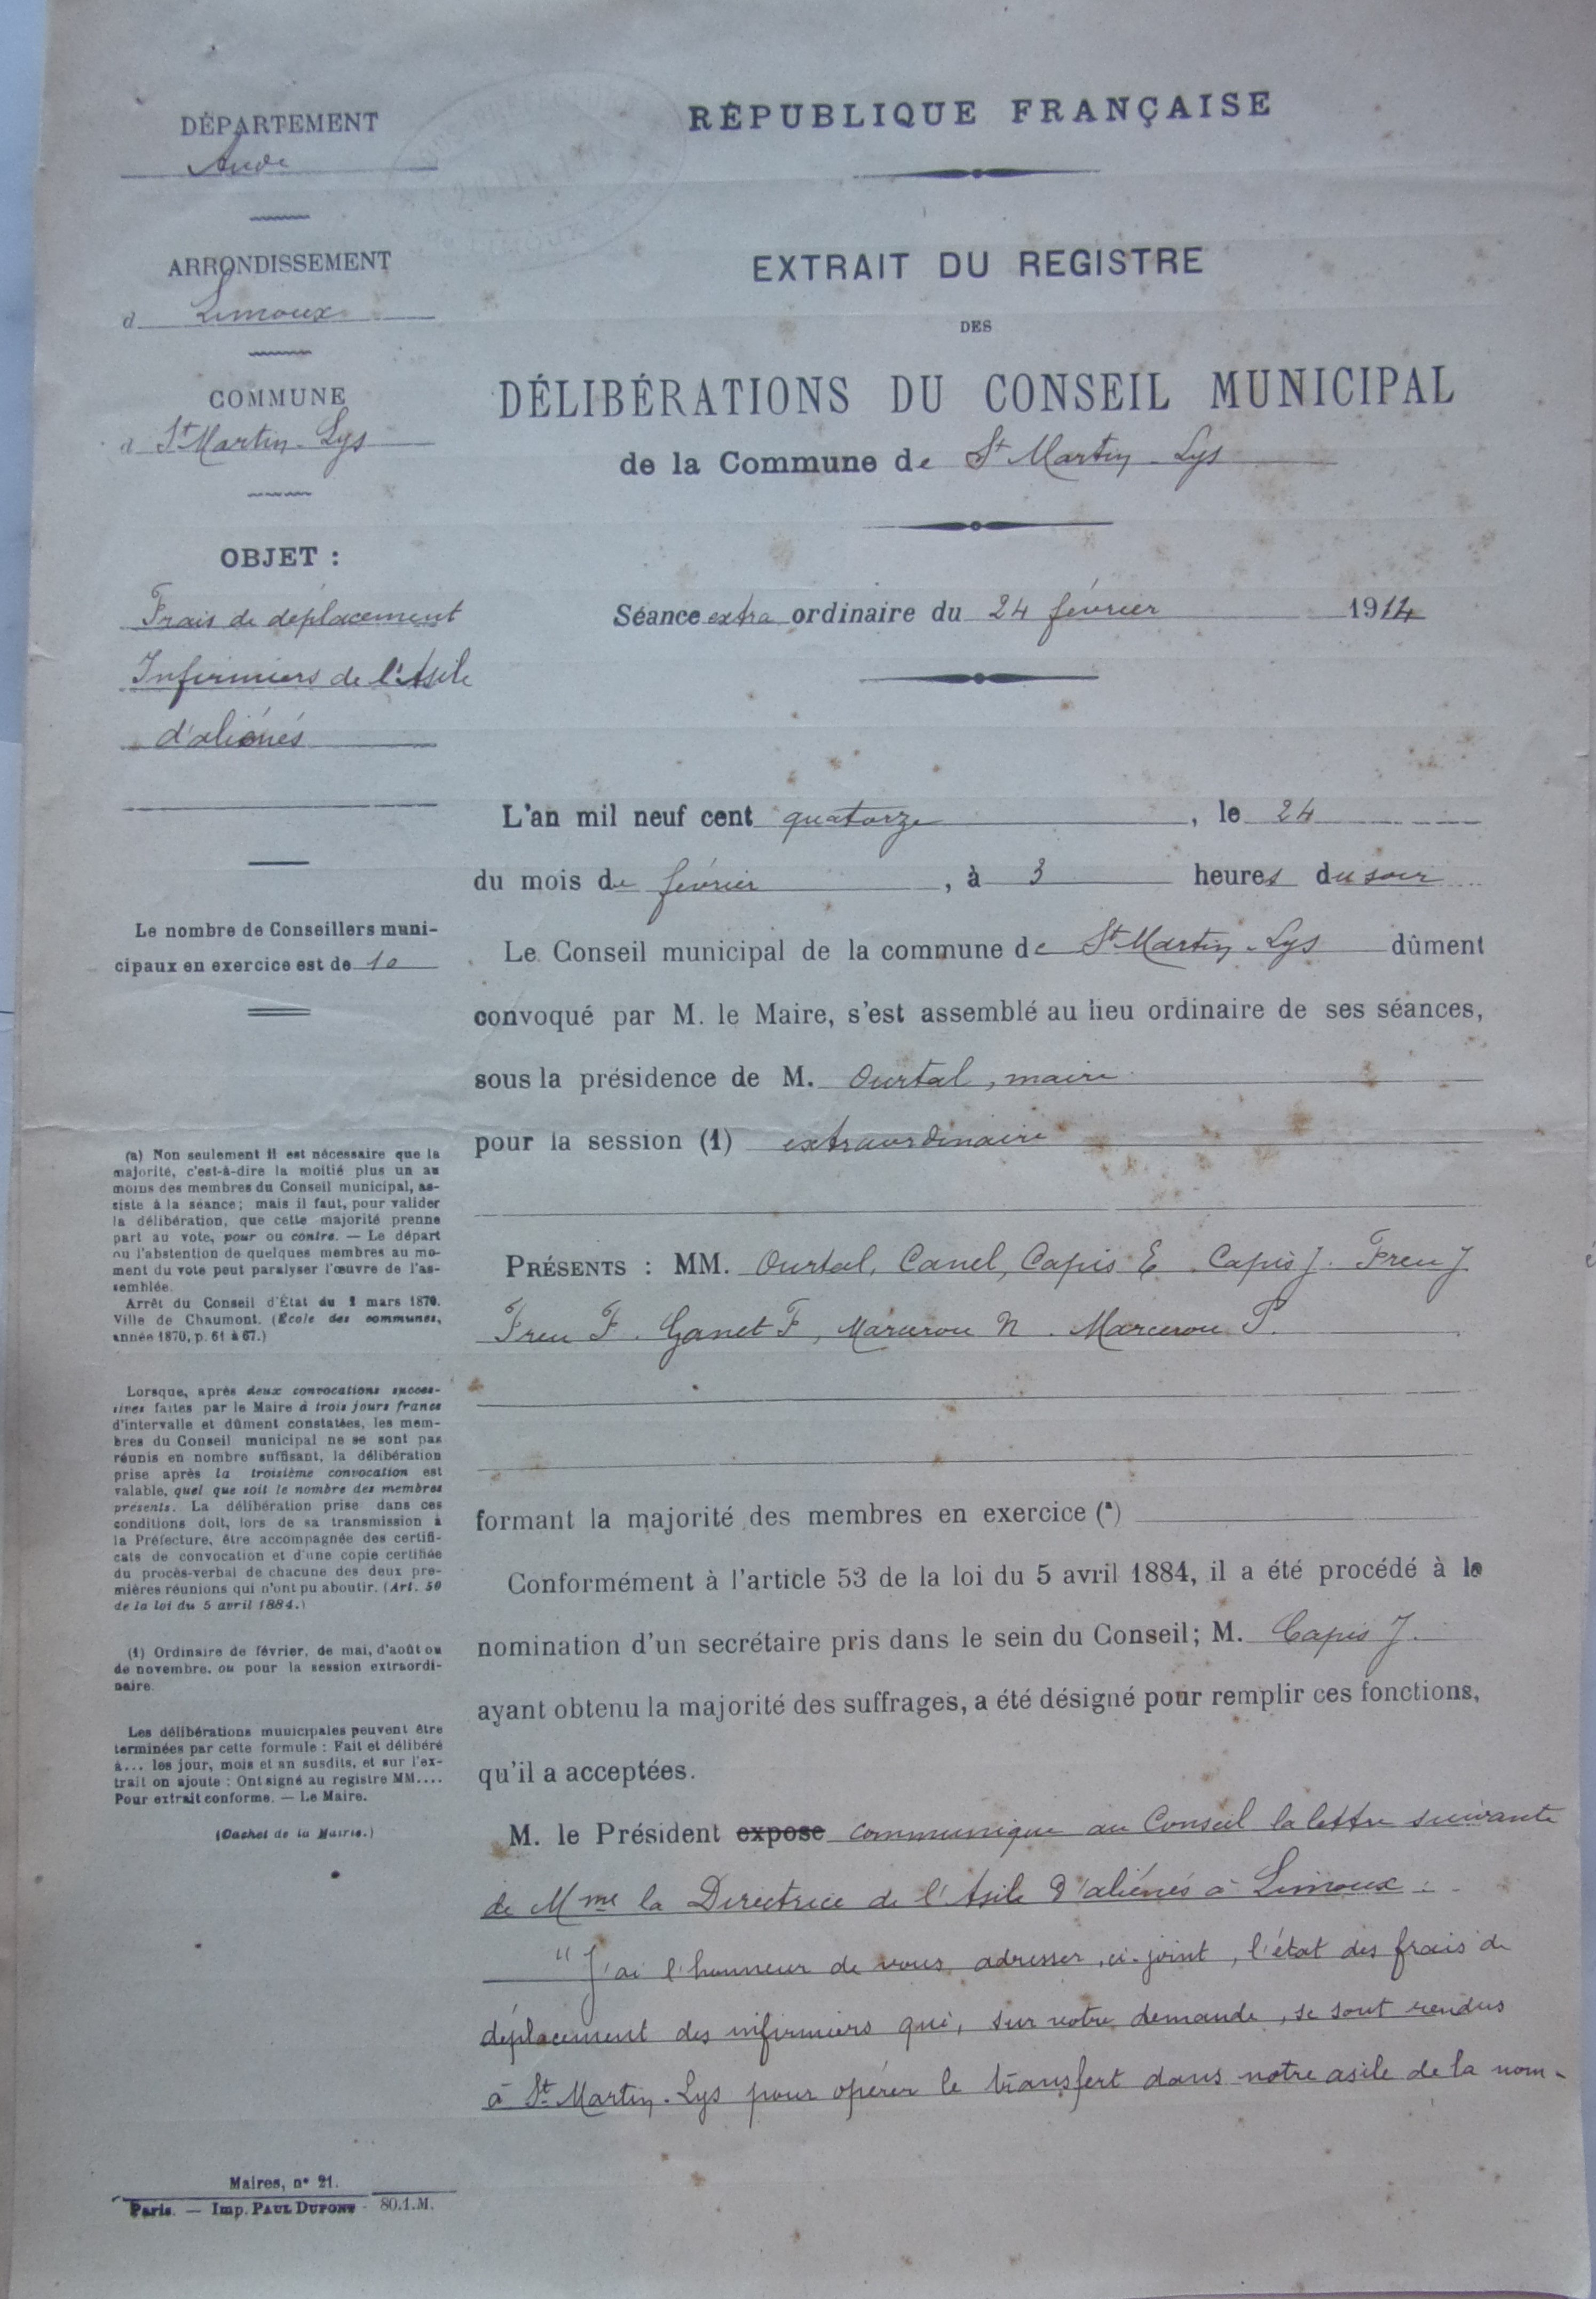 DÉPARTEMENT
Aude
ARRONDISSEMENT
d Limoux
COMMUNE
d St Martin-Lys
OBJET :
Frais de déplacement
Infirmiers de l'Asile
d'aliénés
Le nombre de Conseillers muni-
cipaux en exercice est de 10
(a) Non seulement il est nécessaire que la
majorité, c'est-à-dire la moitié plus un au
moins des membres du Conseil municipal, as-
siste à la séance; mais il faut, pour valider
la délibération, que cette majorité prenne
part au vote, pour ou contre. — Le départ
ou l'abstention de quelques membres au mo-
ment du vote peut paralyser l'œuvre de l'as-
semblée.
Arrêt du Conseil d'État du 1 mars 1870.
Ville de Chaumont. (École des communes,
année 1870, p. 61 à 67.)
Lorsque, après deux convocations succes-
sives faites par le Maire à trois jours francs
d'intervalle et dûment constatées, les mem-
bres du Conseil municipal ne se sont pas
réunis en nombre suffisant, la délibération
prise après la troisième convocation est
valable, quel que soit le nombre des membres
présents. La délibération prise dans ces
conditions doit, lors de sa transmission à
la Préfecture, être accompagnée des certifi-
cats de convocation et d'une copie certifiée
du procès-verbal de chacune des deux pre-
mières réunions qui n'ont pu aboutir. (Art. 50
de la loi du 5 avril 1884.)
(1) Ordinaire de février, de mai, d'août ou
de novembre, ou pour la session extraordi-
naire.
Les délibérations municipales peuvent être
terminées par cette formule : Fait et délibéré
à... les jour, mois et an susdits, et sur l'ex-
trait on ajoute : Ont signé au registre MM....
Pour extrait conforme. — Le Maire.
(Cachet de la Mairie.)
Maires, n° 21.
Paris. — Imp. PAUL DUPONT - 80.1.M.
RÉPUBLIQUE FRANÇAISE
EXTRAIT DU REGISTRE
DES
DÉLIBÉRATIONS DU CONSEIL MUNICIPAL
de la Commune de St Martin-Lys
Séance extra ordinaire du 24 février 1914
L'an mil neuf cent quatorze, le 24
du mois de février, à 3 heures du soir
Le Conseil municipal de la commune de St Martin-Lys dûment
convoqué par M. le Maire, s'est assemblé au lieu ordinaire de ses séances,
sous la présidence de M. Ourtal, maire
pour la session (1) extraordinaire
PRÉSENTS : MM. Ourtal, Canel, Capis E. Capis J. Freu J
Freu F. Ganet F, Marcerou N. Marcerou P.
formant la majorité des membres en exercice (a)
Conformément à l'article 53 de la loi du 5 avril 1884, il a été procédé à la
nomination d'un secrétaire pris dans le sein du Conseil; M. Capis J.
ayant obtenu la majorité des suffrages, a été désigné pour remplir ces fonctions,
qu'il a acceptées.
M. le Président expose communique au Conseil la lettre suivante
de Mme la Directrice de l'Asile d'aliénés à Limoux :
"J'ai l'honneur de vous adresser, ci-joint, l'état des frais de
déplacement des infirmiers qui, sur votre demande, se sont rendus
à St Martin-Lys pour opérer le transfert dans notre asile de la nom-